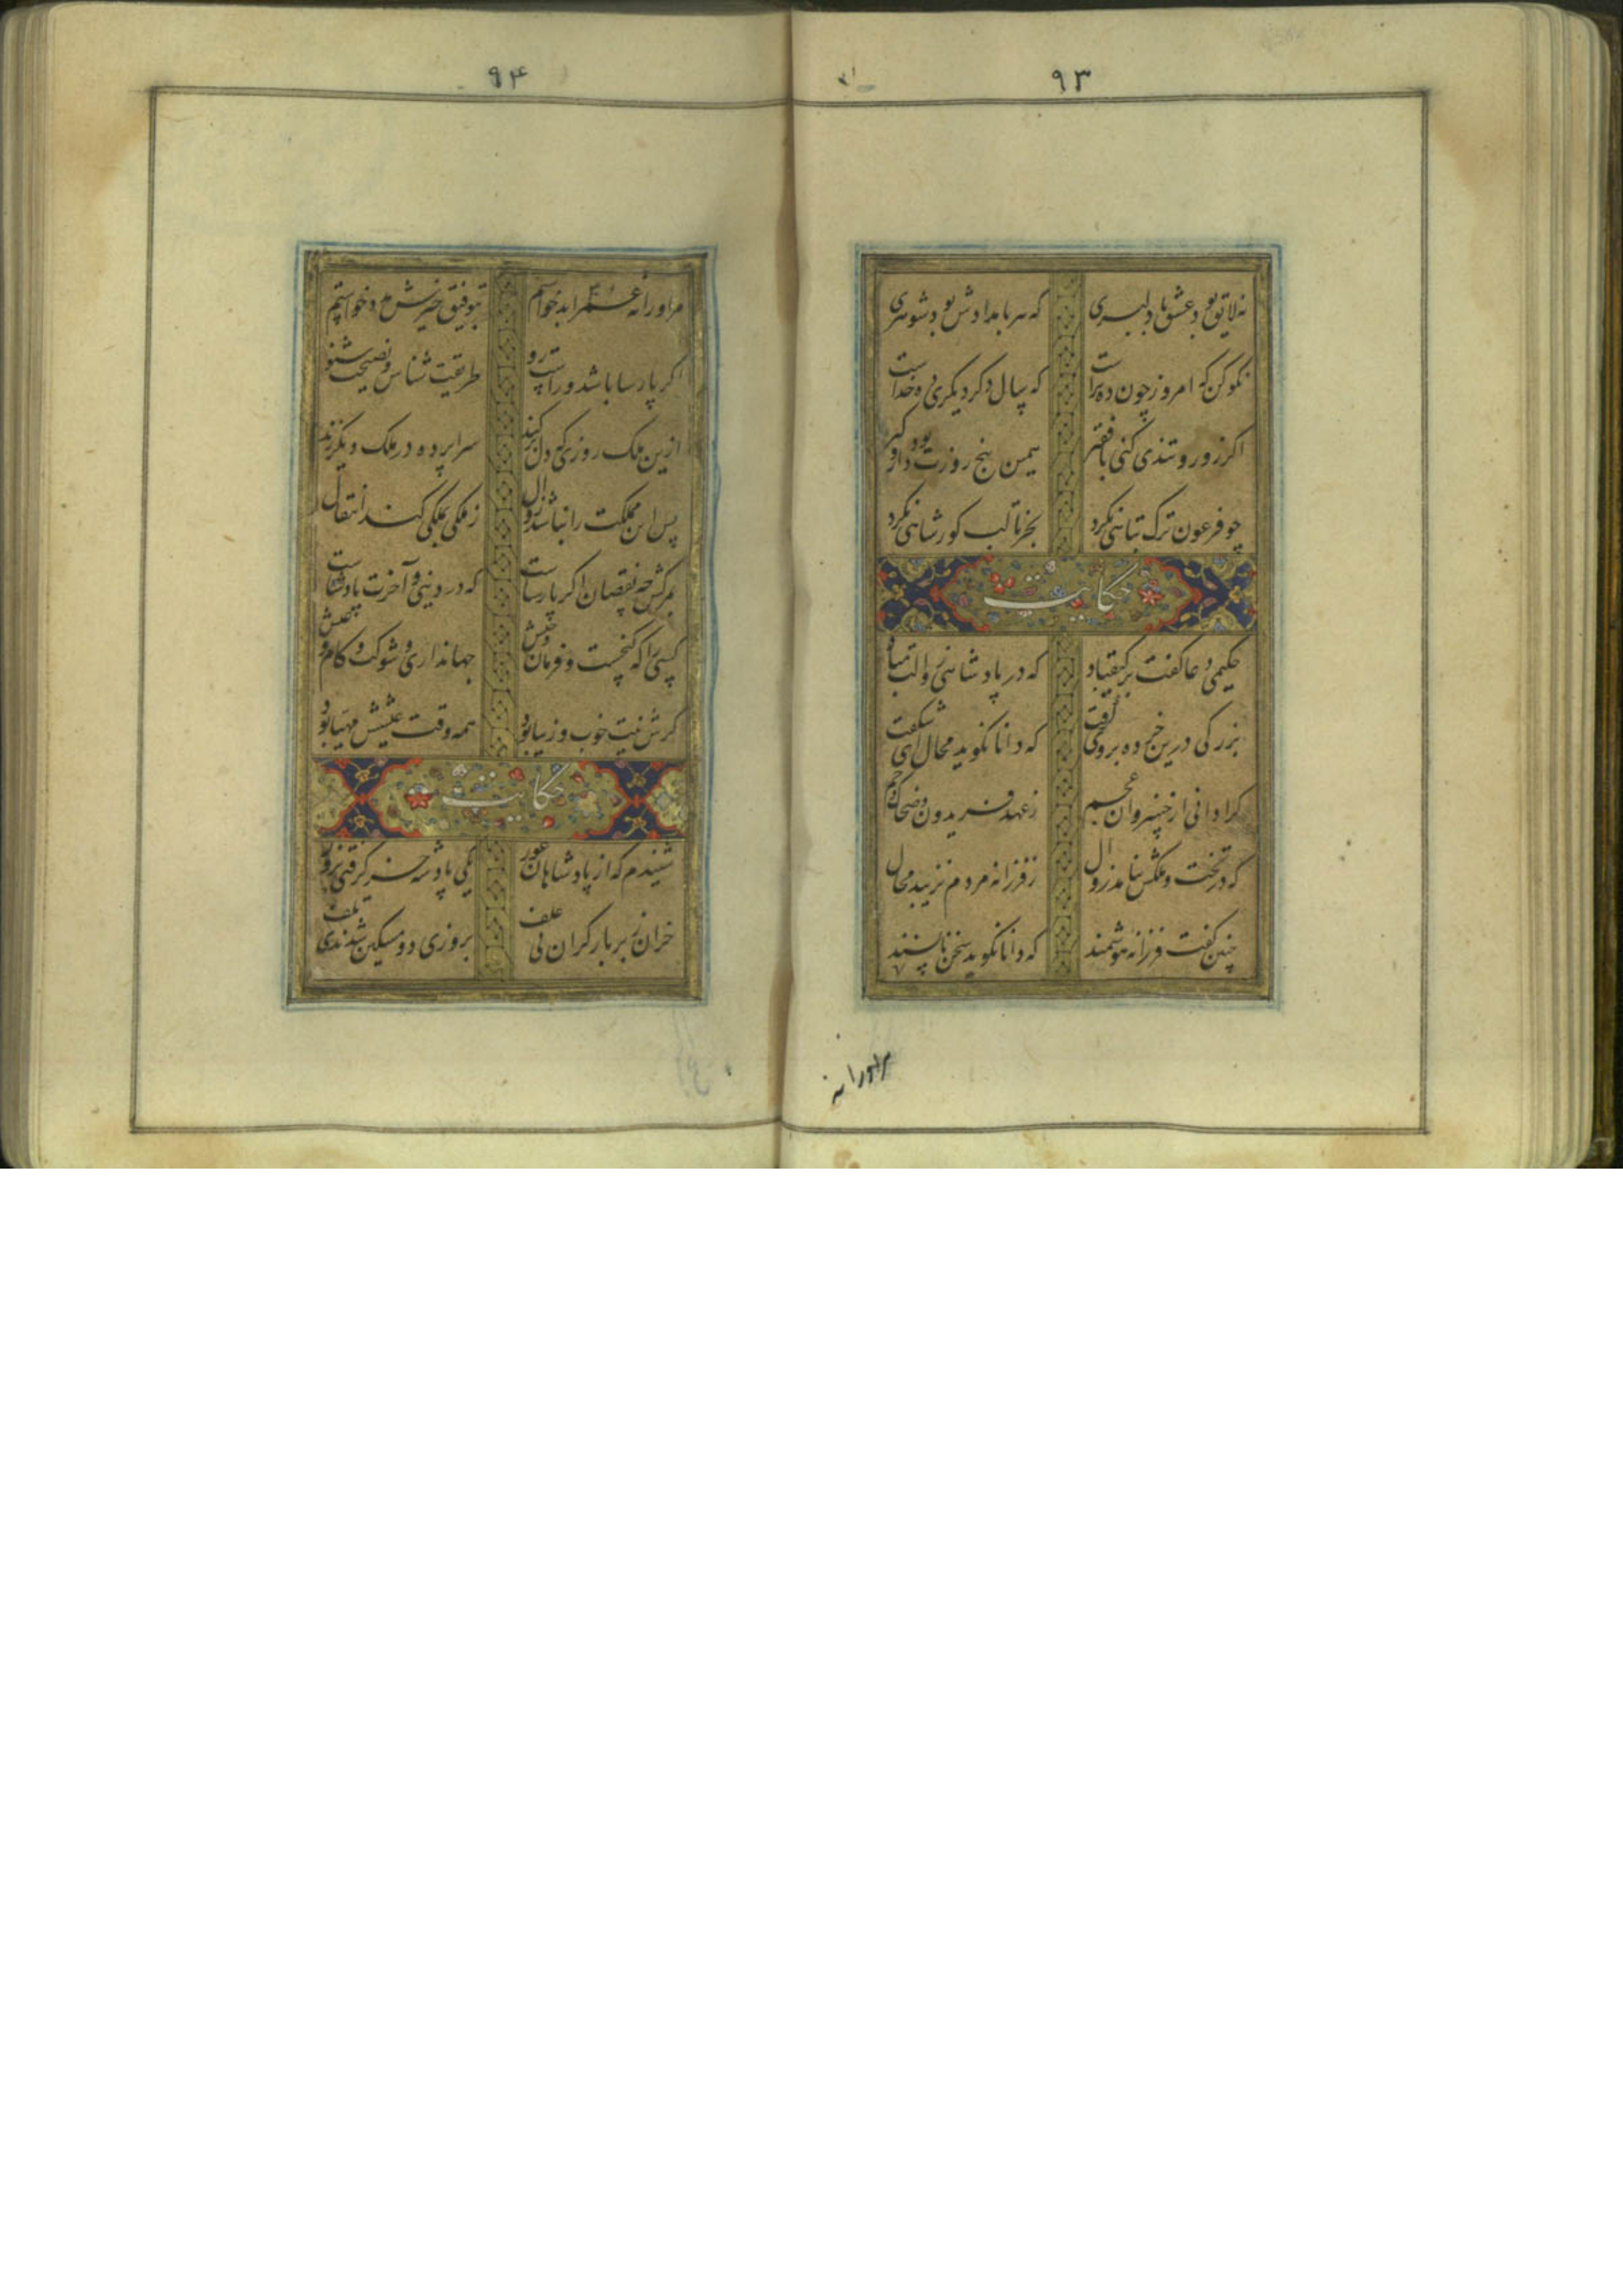 ۹۳
نه لایق بود عشق با دلبری که هر بامدادش بود شوهری
نکو کن که امروز چون ده تراست که سال دگر دیگری ده خداست
اگر زور و تندی کنی با فقیر همین پنج روزت بود دار و گیر
چو فرعون ترک تباهی نکرد بجز تا لب گور شاهی نکرد
حکایت
حکیمی دعا گفت بر کیقباد که در پادشاهی زوالت مباد
بزرگی درین خرده بر وی گرفت که دانا نگوید محال ای شگفت
کرا دانی از خسروان عجم ز عهد فریدون و ضحاک و جم
که در تخت و ملکش نیامد زوال ز فرزانه مردم نزیبد محال
چنین گفت فرزانه هوشمند که دانا نگوید سخن ناپسند
مر او را نه
۹۴
مر او را نه عمر ابد خواستم بتوفیق خیرش مدد خواستم
گر پارسا باشد و راست رو طریقت شناس و نصیحت شنو
ازین ملک روزی که دل برکند سراپرده در ملک دیگر زند
پس این مملکت را نباشد زوال ز ملکی بملکی کند انتقال
ز مرگش چه نقصان اگر پارساست که در دنیی و آخرت پادشاست
کسی را که گنجست و فرمان و جیش جهانداری و شوکت و کام و عیش
گرش نیت خوب و زیبا بود همه وقت عیشش مهیا بود
حکایت
شنیدم که از پادشاهان غور یکی پادشه خر گرفتی بزور
خران زیر بار گران بی علف بروزی دو مسکین شدندی تلف